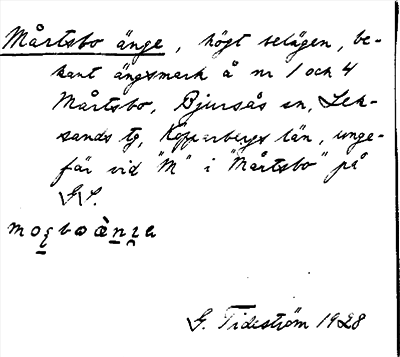 Mårtsbo änge, högt belägen, be-
kant ängsmark å nr 1 och 4
Mårtsbo, Bjursås sn, Lek-
sands tg, Kopparbergs län, unge-
fär vid "M" i "Mårtsbo" på
GS.
G. Tideström 1928